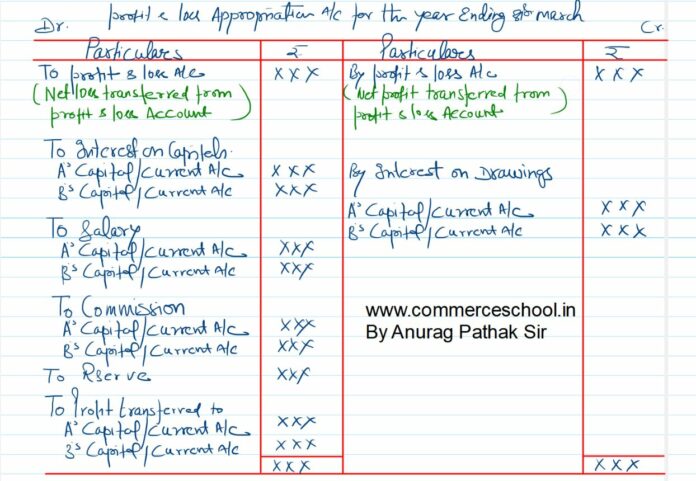 profit & loss Appropriation A/c for the year Ending 31st March
Dr. Cr.
Particulars ₹ Particulars ₹
To profit & loss A/c XXX By profit & loss A/c XXX
(Net loss transferred from (Net profit transferred from
profit & loss Account) profit & loss Account)
To Interest on Capitals.
A's Capital/Current A/c XXX By Interest on Drawings
B's Capital/Current A/c XXX
A's Capital/Current A/c XXX
To Salary B's Capital/Current A/c XXX
A's Capital/Current A/c XXX
B's Capital/Current A/c XXX
To Commission www.commerceschool.in
A's Capital/Current A/c XXX By Anurag Pathak Sir
B's Capital/Current A/c XXX
To Reserve XXX
To Profit transferred to
A's Capital/Current A/c XXX
B's Capital/Current A/c XXX
XXX XXX